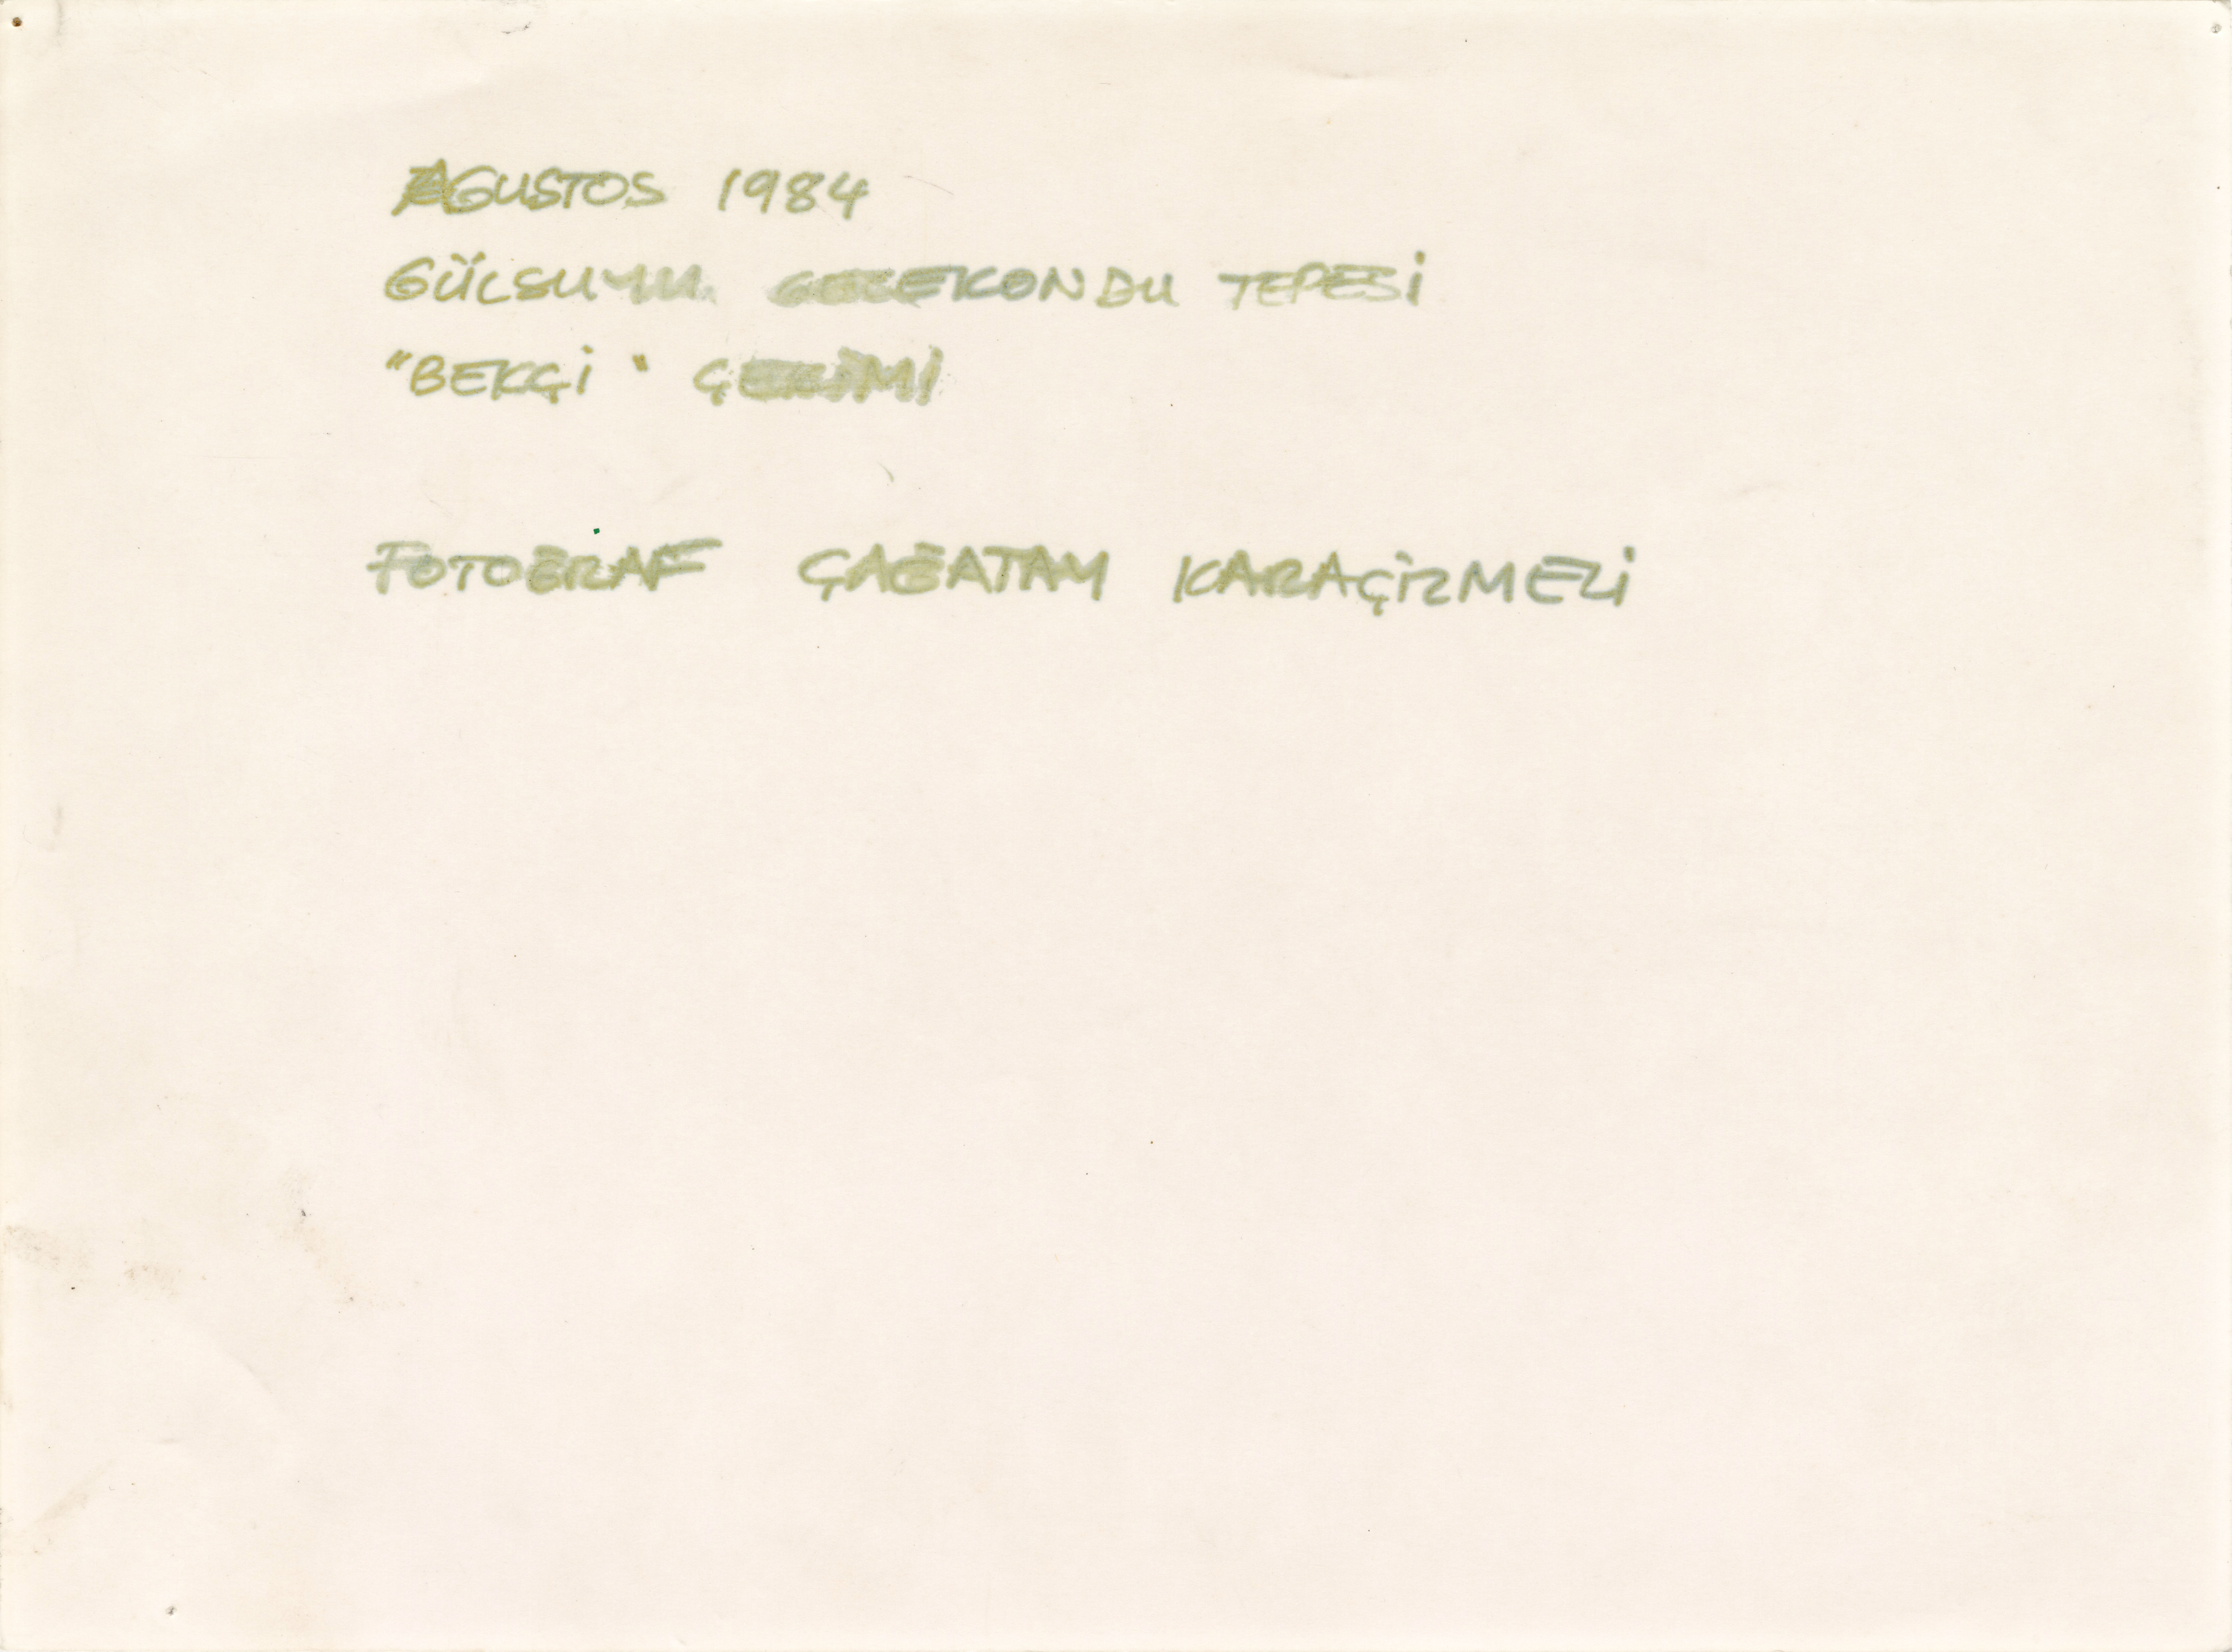 AGUSTOS 1984
GÜLSUYU GECEKONDU TEPESİ
"BEKÇİ" ÇEKİMİ
FOTOĞRAF ÇAĞATAY KARAÇİZMELİ